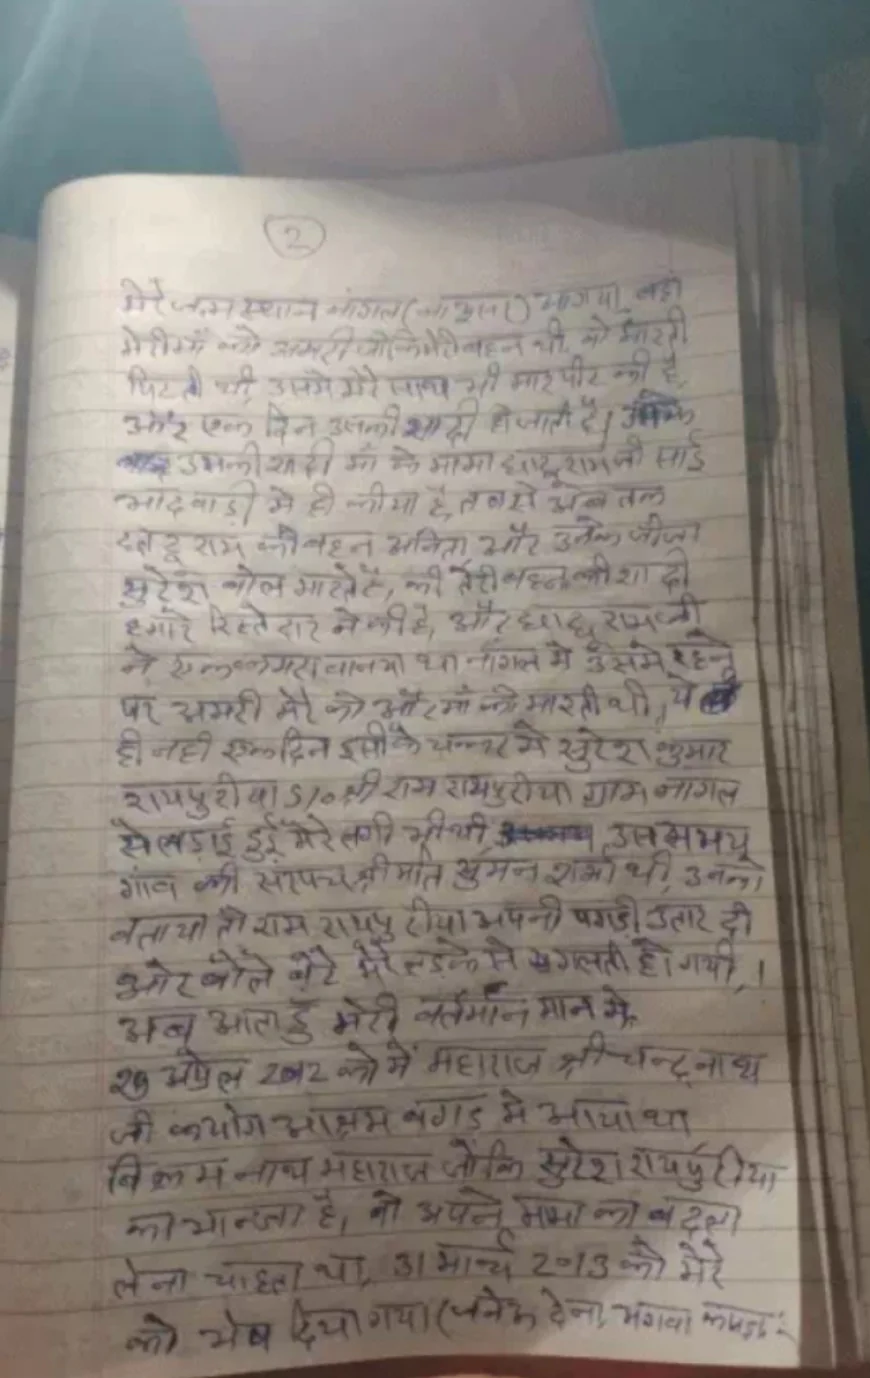 2
मेरे जन्म स्थान नांगल आ गया, वहां
मेरी माँ को अमरी जोकि मेरी बहन थी, वो मारती
पिटती थी, उसने मेरे साथ भी मारपीट की है,
और एक दिन उसकी शादी हो जाती है।
उसकी शादी माँ के मामा रामजी साई
में ही की गया है, तब से अब तक
राम की बहन अनिता और उनके जीजा
सुरेश बोल मारते है, की तेरी बहन की शादी
हमारे रिस्तेदार ने की है, और रामजी
ने एक कमरा बानया था नांगल मे उसमे रहने
पर अमरी मेरे को और माँ को मारती थी, ये
ही नही एक दिन इसी के चक्कर मे सुरेश कुमार
रायपुरीया S/० श्री राम रायपुरीया ग्राम नांगल
से लड़ाई हुई मेरे लगी भी थी, उस समय
गांव की सरपंच श्रीमति सुमन शर्मा थी, उनको
बताया तो राम रायपुरीया अपनी पगड़ी उतार दी
और बोले मेरे लडके से गलती हो गयी,।
अब आता हुँ मेरी वर्तमान मान मे,
अप्रेल 2012 को में महाराज श्री चन्द्रनाथ
जी योग आश्रम बगड मे आया था
विक्रम नाथ महाराज जोकि सुरेश रायपुरीया
का भान्जा है, वो अपने मामा का बदला
लेना चाहता था, 31 मार्च 2013 को मेरे
को भेष दिया गया (जनेऊ देना, भगवा कपडा